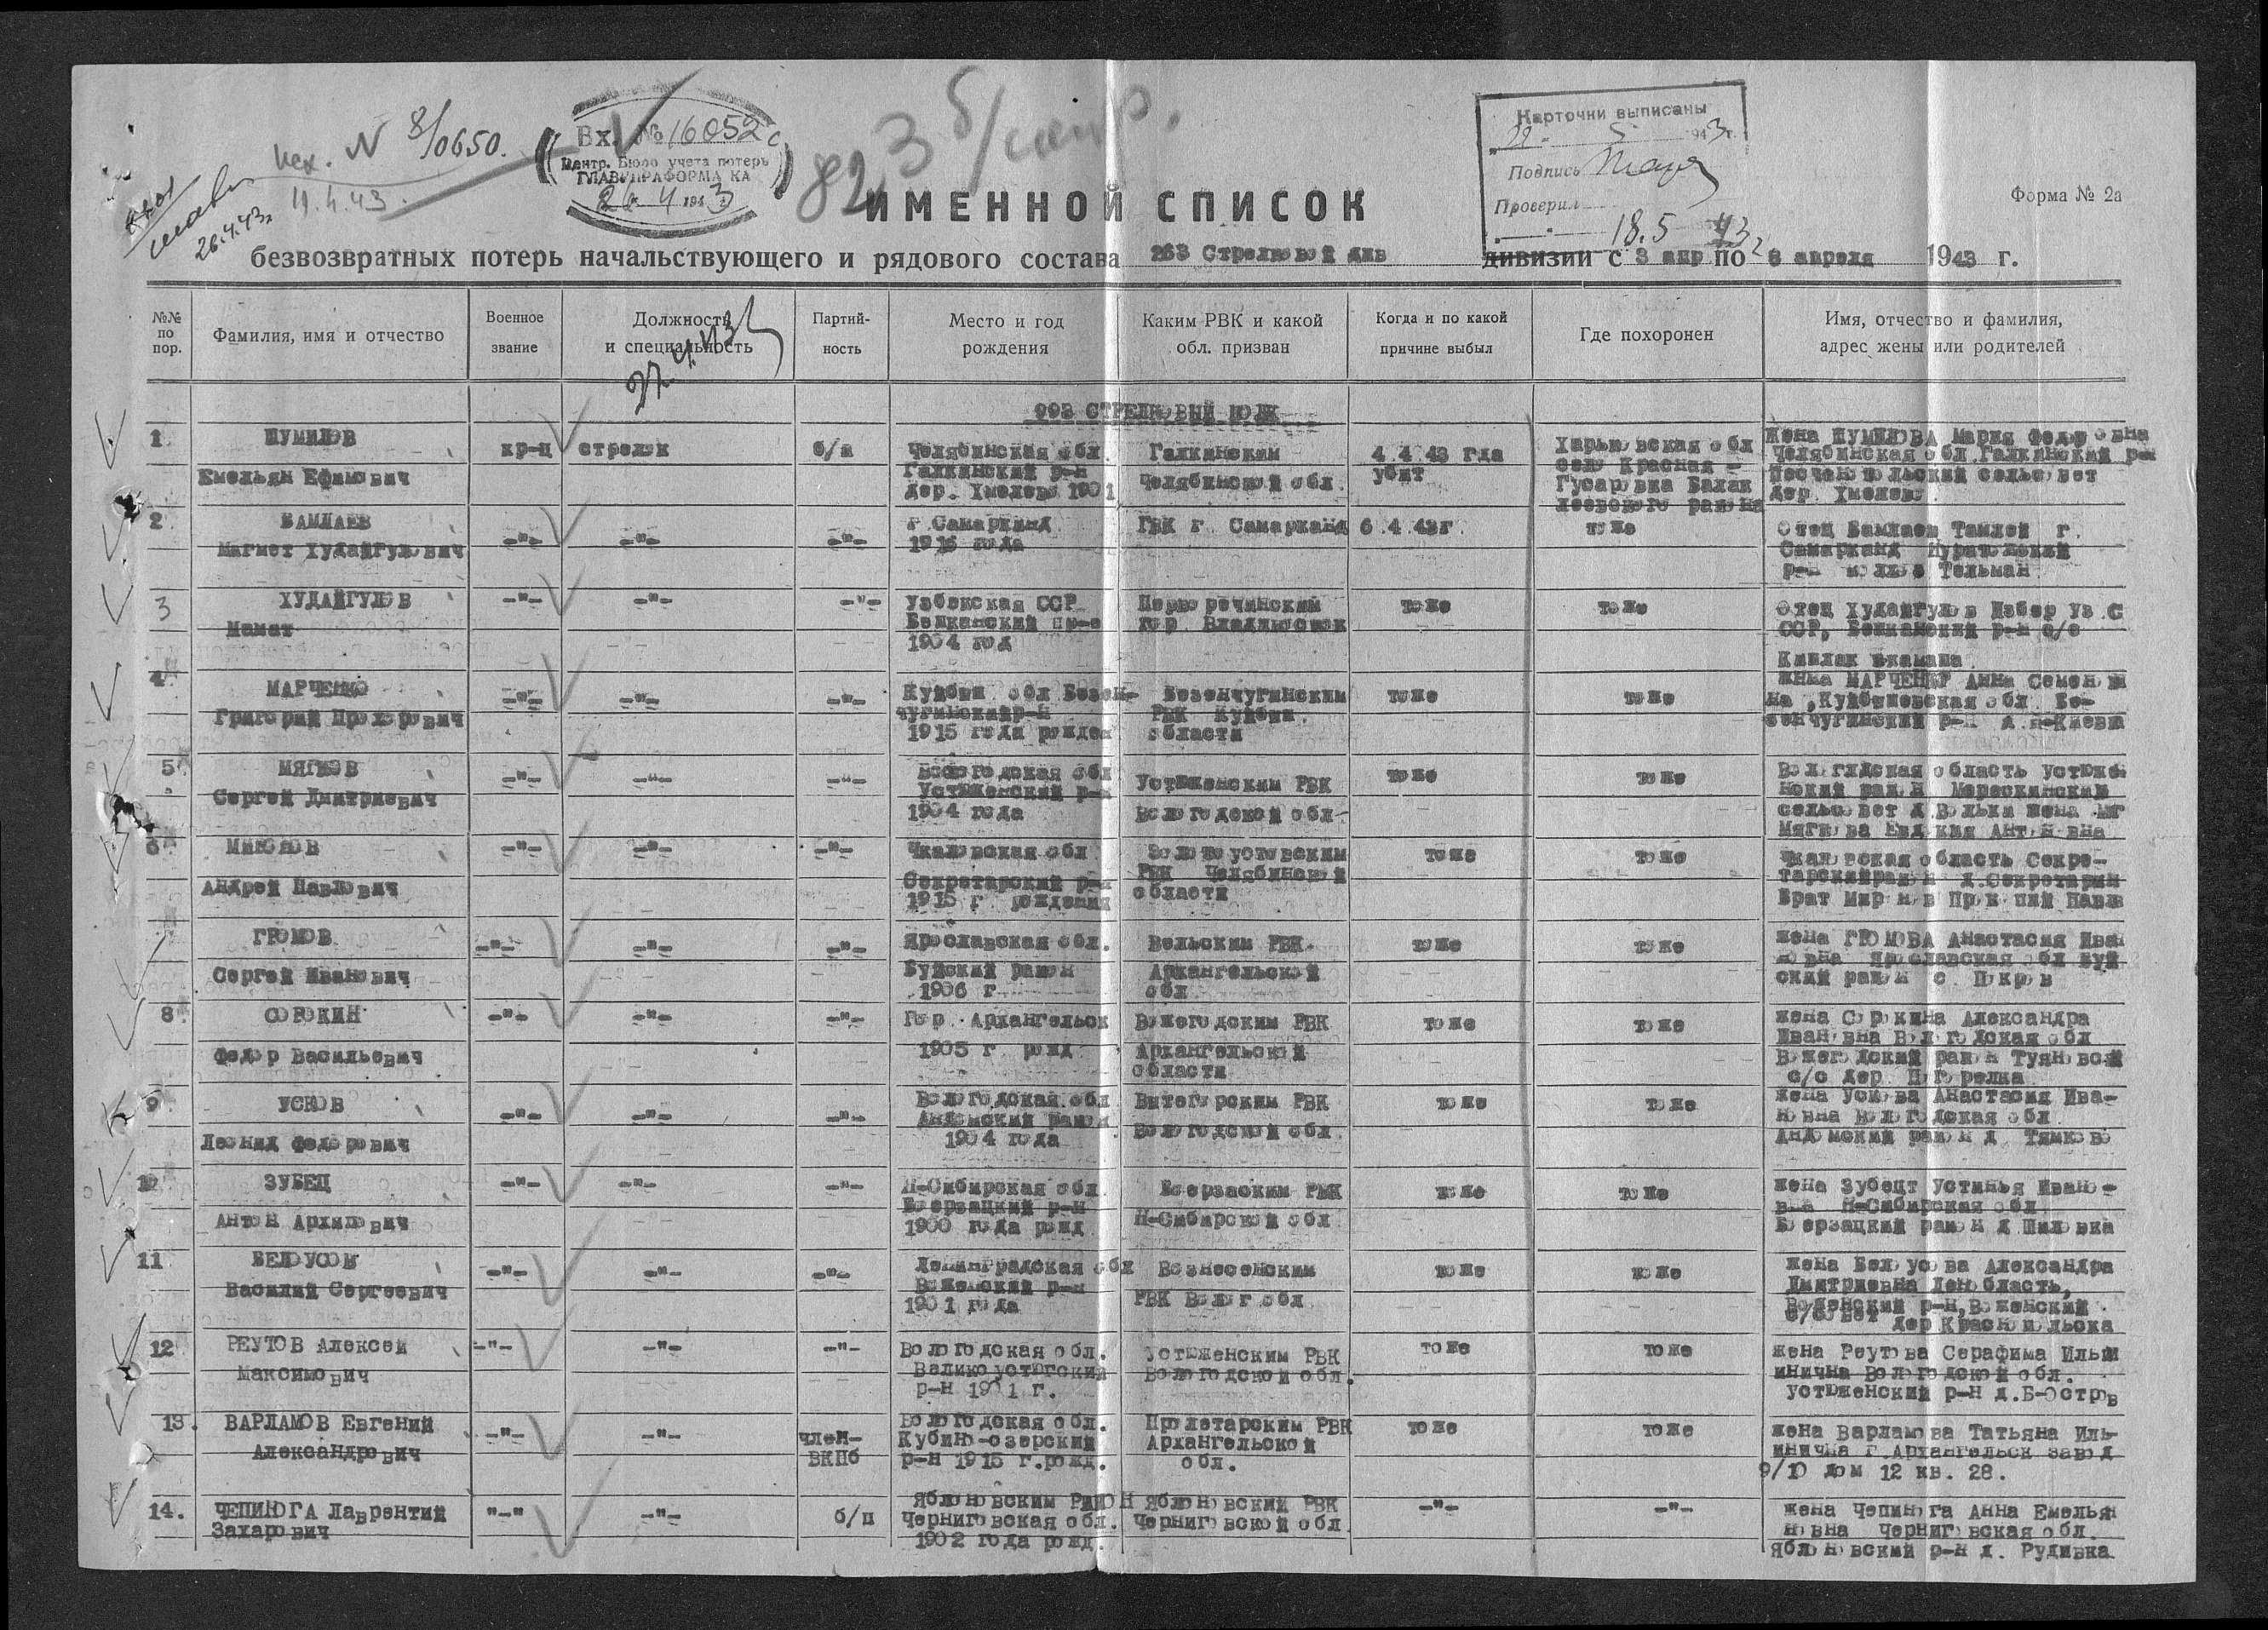 Исх. N 8/0650.
11.4.43.
26.4.43г.
Вх. № 16052с
Центр. Бюро учета потерь
ГЛАВУПРАФОРМА КА
26 4 1943
823 б/
Карточки выписаны
22 5 1943г.
Подпись
Проверил
18.5 43г
Форма № 2а
ИМЕННОЙ СПИСОК
безвозвратных потерь начальствующего и рядового состава 263 Стрелковой див дивизии с 3 апр по 8 апреля 1943 г.
№№ по пор.
Фамилия, имя и отчество
Военное звание
Должность и специальность
Партий-ность
Место и год рождения
Каким РВК и какой обл. призван
Когда и по какой причине выбыл
Где похоронен
Имя, отчество и фамилия, адрес жены или родителей
27.4.43
993 СТРЕЛКОВЫЙ ПОЛК
1
ШУМИЛОВ
Емельян Ефимович
кр-ц
стрелок
б/п
Челябинская обл
Галкинский р-н
дер. Хмелево 1901
Галкинским
Челябинской обл.
4 4 43 гда
убит
Харьковская обл
село Красная -
Гусаровка Балак
леевского района
Жена ШУМИЛОВА Мария Федоровна
Челябинская обл Галкинский р-н
сельсовет
дер. Хмелево
2
Магмет Худайгулович
-"-
-"-
-"-
г Самаркинд
1916 года
ГВК г. Самарканд
6.4.43г.
тоже
Отец г.
Самарканд
р-н колхоз Тельман
3
ХУДАЙГУЛОВ
Мамат
-"-
-"-
-"-
Узбекская ССР
1904 год
Первореченским
гор Владивосток
тоже
тоже
Отец Худайгулов Уз.С
ССР, р-н с/с
Кишлак
4
МАРЧЕНКО
Григорий Прохорович
-"-
-"-
-"-
Куйбыш обл Безен-
чугинскийр-н
1915 года рожден
Безенчугинским
РВК Куйбыш.
области
тоже
тоже
Анна
на, Куйбышевская обл Бе-
зенчугинский р-н
5
МЯГКОВ
Сергей Дмитриевич
-"-
-"-
-"-
Вологодская обл
Устюженский р-н
1904 года
Устюженским РВК
Вологодской обл-
тоже
тоже
Вологядская область устюже
нский район
сельсовет жена
Мягкова Евдокия Антоновна
6
МИРОНОВ
Андрей Павлович
-"-
-"-
-"-
Чкаловская обл
Секретарский р-н
1915 г рождения
Золотоустовским
РВК Челябинской
области
тоже
тоже
Чкаловская область Секре-
тарскийрайон
Брат Миронов Прокопий Павло
ГРОМОВ
Сергей Иванович
-"-
-"-
-"-
Ярославская обл.
Буйский район
1906 г
Вельским РВК.
Архангельской
обл
тоже
тоже
жена ГРОМОВА Анастасия Иван
новна Ярославская обл Буй
ский район с. Покров
8
СОРОКИН
Федор Васильевич
-"-
-"-
-"-
Гор. Архангельск
1905 г рожд
Вожегодским РВК
Архангельской
области
тоже
тоже
жена Сорокина Александра
Ивановна Вологодская обл
Вожегодский район
с/с дер Погорелка
9
УСКОВ
Леонид Федорович
-"-
-"-
-"-
Вологодская.обл
Андомский район
1904 года
Вытегорским РВК
Вологодской обл.
тоже
тоже
жена Ускова Анастасия Ива-
новна Вологодская обл
Андомский район д. Тямково
10
ЗУБЕЦ
Антон Архипович
-"-
-"-
-"-
Н-Сибирская обл
р-н
1900 года рожд
РВК
Н-Сибирской обл
тоже
тоже
жена Зубецт Устинья Ивано-
вна Н-Сибирская обл
район д
11
БЕЛОУСОВ
Василий Сергеевич
-"-
-"-
-"-
Ленинградская обл
р-н
1901 года
Вознесенским
РВК Волог.обл
тоже
тоже
жена Белоусова Александра
Дмитриевна Ленобласть,
р-н,
с/совет
12
РЕУТОВ Алексей
Максимович
-"-
-"-
-"-
Вологодская обл.
Великоустюгский
р-н 1901 г.
Устюженским РВК
Вологодской обл.
тоже
тоже
жена Реутова Серафима Ильи
инична Вологодской обл.
устюженский р-н д.Б-Остров
13.
ВАРЛАМОВ Евгений
Александрович
-"-
-"-
член-
ВКПб
Вологодская обл.
Кубино-озерский
р-н 1915 г.рожд.
Пролетарским РВК
Архангельской
обл.
тоже
тоже
жена Варламова Татьяна Иль-
инична г.Архангельск завод
9/10 дом 12 кв. 28.
14.
ЧЕПИНОГА Лаврентий
Захарович
"-"
-"-
б/п
Яблоновским Район
Черниговская обл.
1902 года рожд.
Яблоновский РВК
Черниговской обл
-"-
-"-
жена Чепинога Анна Емелья
новна Черниговская обл.
Яблоновский р-н д. Рудивка